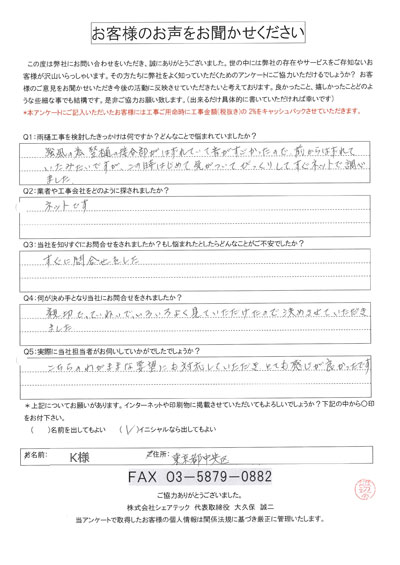 お客様のお声をお聞かせください
この度は弊社にお問い合わせをいただき、誠にありがとうございました。世の中には弊社の存在やサービスをご存知ないお
客様が沢山いらっしゃいます。その方たちに弊社をよく知っていただくためのアンケートにご協力いただけるでしょうか？ お客
様のご意見をお聞かせいただき今後の活動に反映させていただきたいと考えております。良かったこと、嬉しかったことどのよ
うな些細な事でも結構です。是非ご協力お願い致します。（出来るだけ具体的に書いていただければ幸いです）
*本アンケートにご記入いただいたお客様には工事ご用命時に工事金額(税抜き)の 2%をキャッシュバックさせていただきます。
Q1：雨樋工事を検討したきっかけは何ですか？どんなことで悩まれていましたか？
強風の為 竪樋の接合部がはずれていて音がすごかったので、前からはずれて
いたみたいですが、この時はじめて気がついてびっくりしてすぐネットで調べ
ました
Q2：業者や工事会社をどのように探されましたか？
ネットです
Q3：当社を知りすぐにお問合せをされましたか？もし悩まれたとしたらどんなことがご不安でしたか？
すぐに問合せをした
Q4：何が決め手となり当社にお問合せをされましたか？
親切で、ていねいで、いろいろよく見ていただけたので決めさせていただき
ました
Q5：実際に当社担当者がお伺いしていかがでしたでしょうか？
こちらのわがままな要望にも対応していただき とても感じが良かったです
＊上記についてお願いがあります。インターネットや印刷物に掲載させていただいてもよろしいでしょうか？下記の中から〇印
をお付下さい。
（ ）名前を出してもよい （✓）イニシャルなら出してもよい
お名前： K様 ご住所： 東京都中央区
FAX 03-5879-0882
ご協力ありがとうございました。
株式会社シェアテック 代表取締役 大久保 誠二
当アンケートで取得したお客様の個人情報は関係法規に基づき厳正に管理いたします。